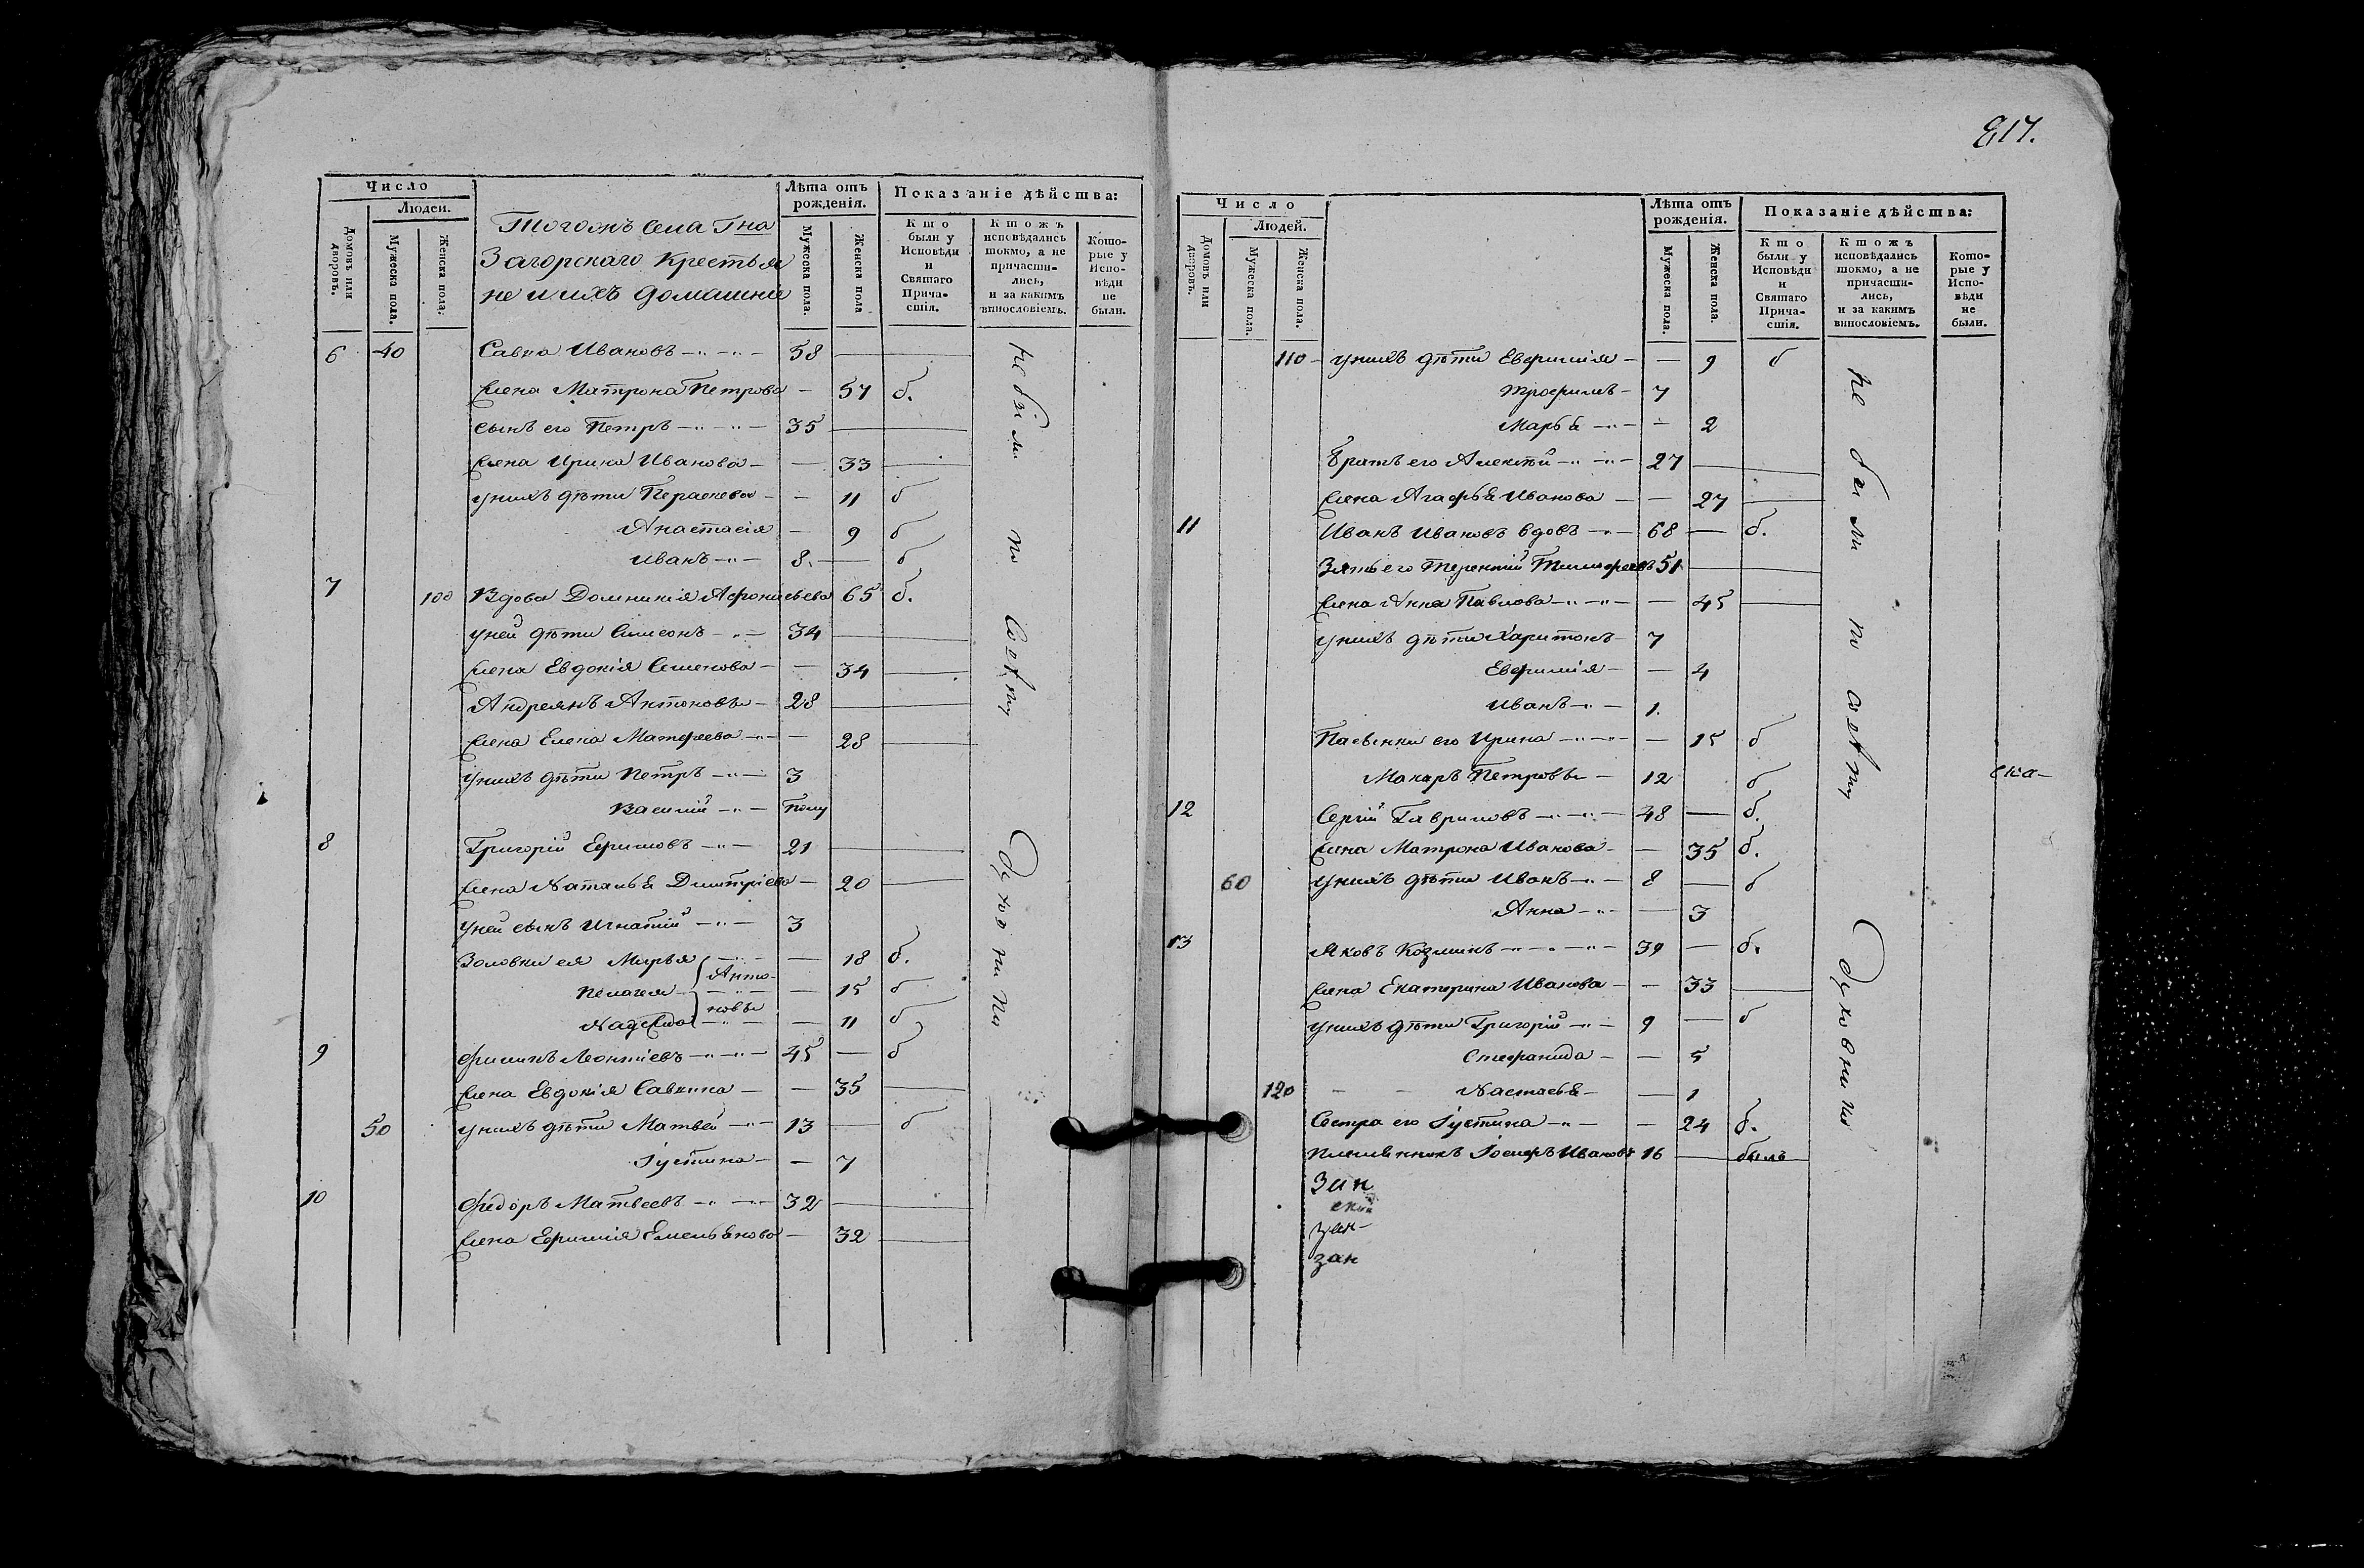 817.
Число
Людей.
Домовъ или дворовъ.
Мужеска пола.
Женска пола.
Тогожъ села Гна
Загорскаго крестья
не и ихъ домашніе
Лѣта отъ рожденія.
Мужеска пола.
Женска пола
Показаніе дѣйства:
Кто были у Исповѣди и Святаго Причастія.
Ктожъ исповѣдались токмо, а не причастились, и за какимъ винословіемъ.
Которые у Исповѣди не были.
6 40 Савва Ивановъ 58
жена Матрона Петрова 57 б.
сынъ его Петръ 35
жена Ирина Иванова 33
у нихъ дѣти Параскева 11 б
Анастасія 9 б
Иванъ 8. б
7 100 Вдова Домникія Афонасьева 65 б.
у ней дѣти Симеонъ 34
жена Евдокія Семенова 34
Андреянъ Антоновы 28
жена Елена Матфеева 28
у нихъ дѣти Петръ 3
Василій полу
8 Григорій Ефимовъ 21
жена Наталья Димитріева 20
у ней сынъ Игнатій 3
Золовки ея Марья 18 б.
Анто-
Пелагея 15 б
новы
Надежда 11 б
9 Филипъ Леонтіевъ 45 б
жена Евдокія Савина 35
50 у нихъ дѣти Матвей 13 б
Іустина 7
10 Федоръ Матвеевъ 32
жена Ефимія Емельянова 32
не были по
духовнина
Число
Людей.
Домовъ или дворовъ.
Мужеска пола.
Женска пола.
Лѣта отъ рожденія.
Мужеска пола.
Женска пола.
Показаніе дѣйства:
Кто были у Исповѣди и Святаго Причастія.
Ктожъ исповѣдались токмо, а не причастились, и за какимъ винословіемъ.
Которые у Исповѣди не были.
110 у нихъ дѣти Евфимія 9 б
Трофимъ 7
Марья 2
Братъ его Алексѣй 27
жена Агафья Иванова 27
11 Иванъ Ивановъ вдовъ 68 б.
Зять его Терентій Тимофеевъ 51
жена Анна Павлова 45
у нихъ дѣти Харитонъ 7
Евфимія 4
Иванъ 1.
Пасынки его Ирина 15 б
Макаръ Петровы 12 б
12 Сергій Гавриловъ 48 б.
жена Матрона Иванова 35 б.
60 у нихъ дѣти Иванъ 8 б
Анна 3
13 Яковъ Козминъ 39 б.
жена Екатерина Иванова 33
у нихъ дѣти Григорій 9 б
Стефанида 5
120 Настасья 1
Сестра его Іустина 24 б.
Племянникъ Іосифъ Ивановъ 16 былъ
не были по
духовнина
ска-
зан